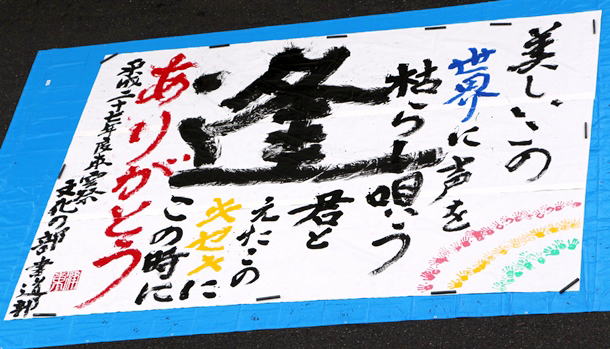 美しいこの
世界に声を
枯らし唄う
君と
逢
えたこの
キセキに
この時に
ありがとう
平成二十七年度東雲祭
文化の部 書道部